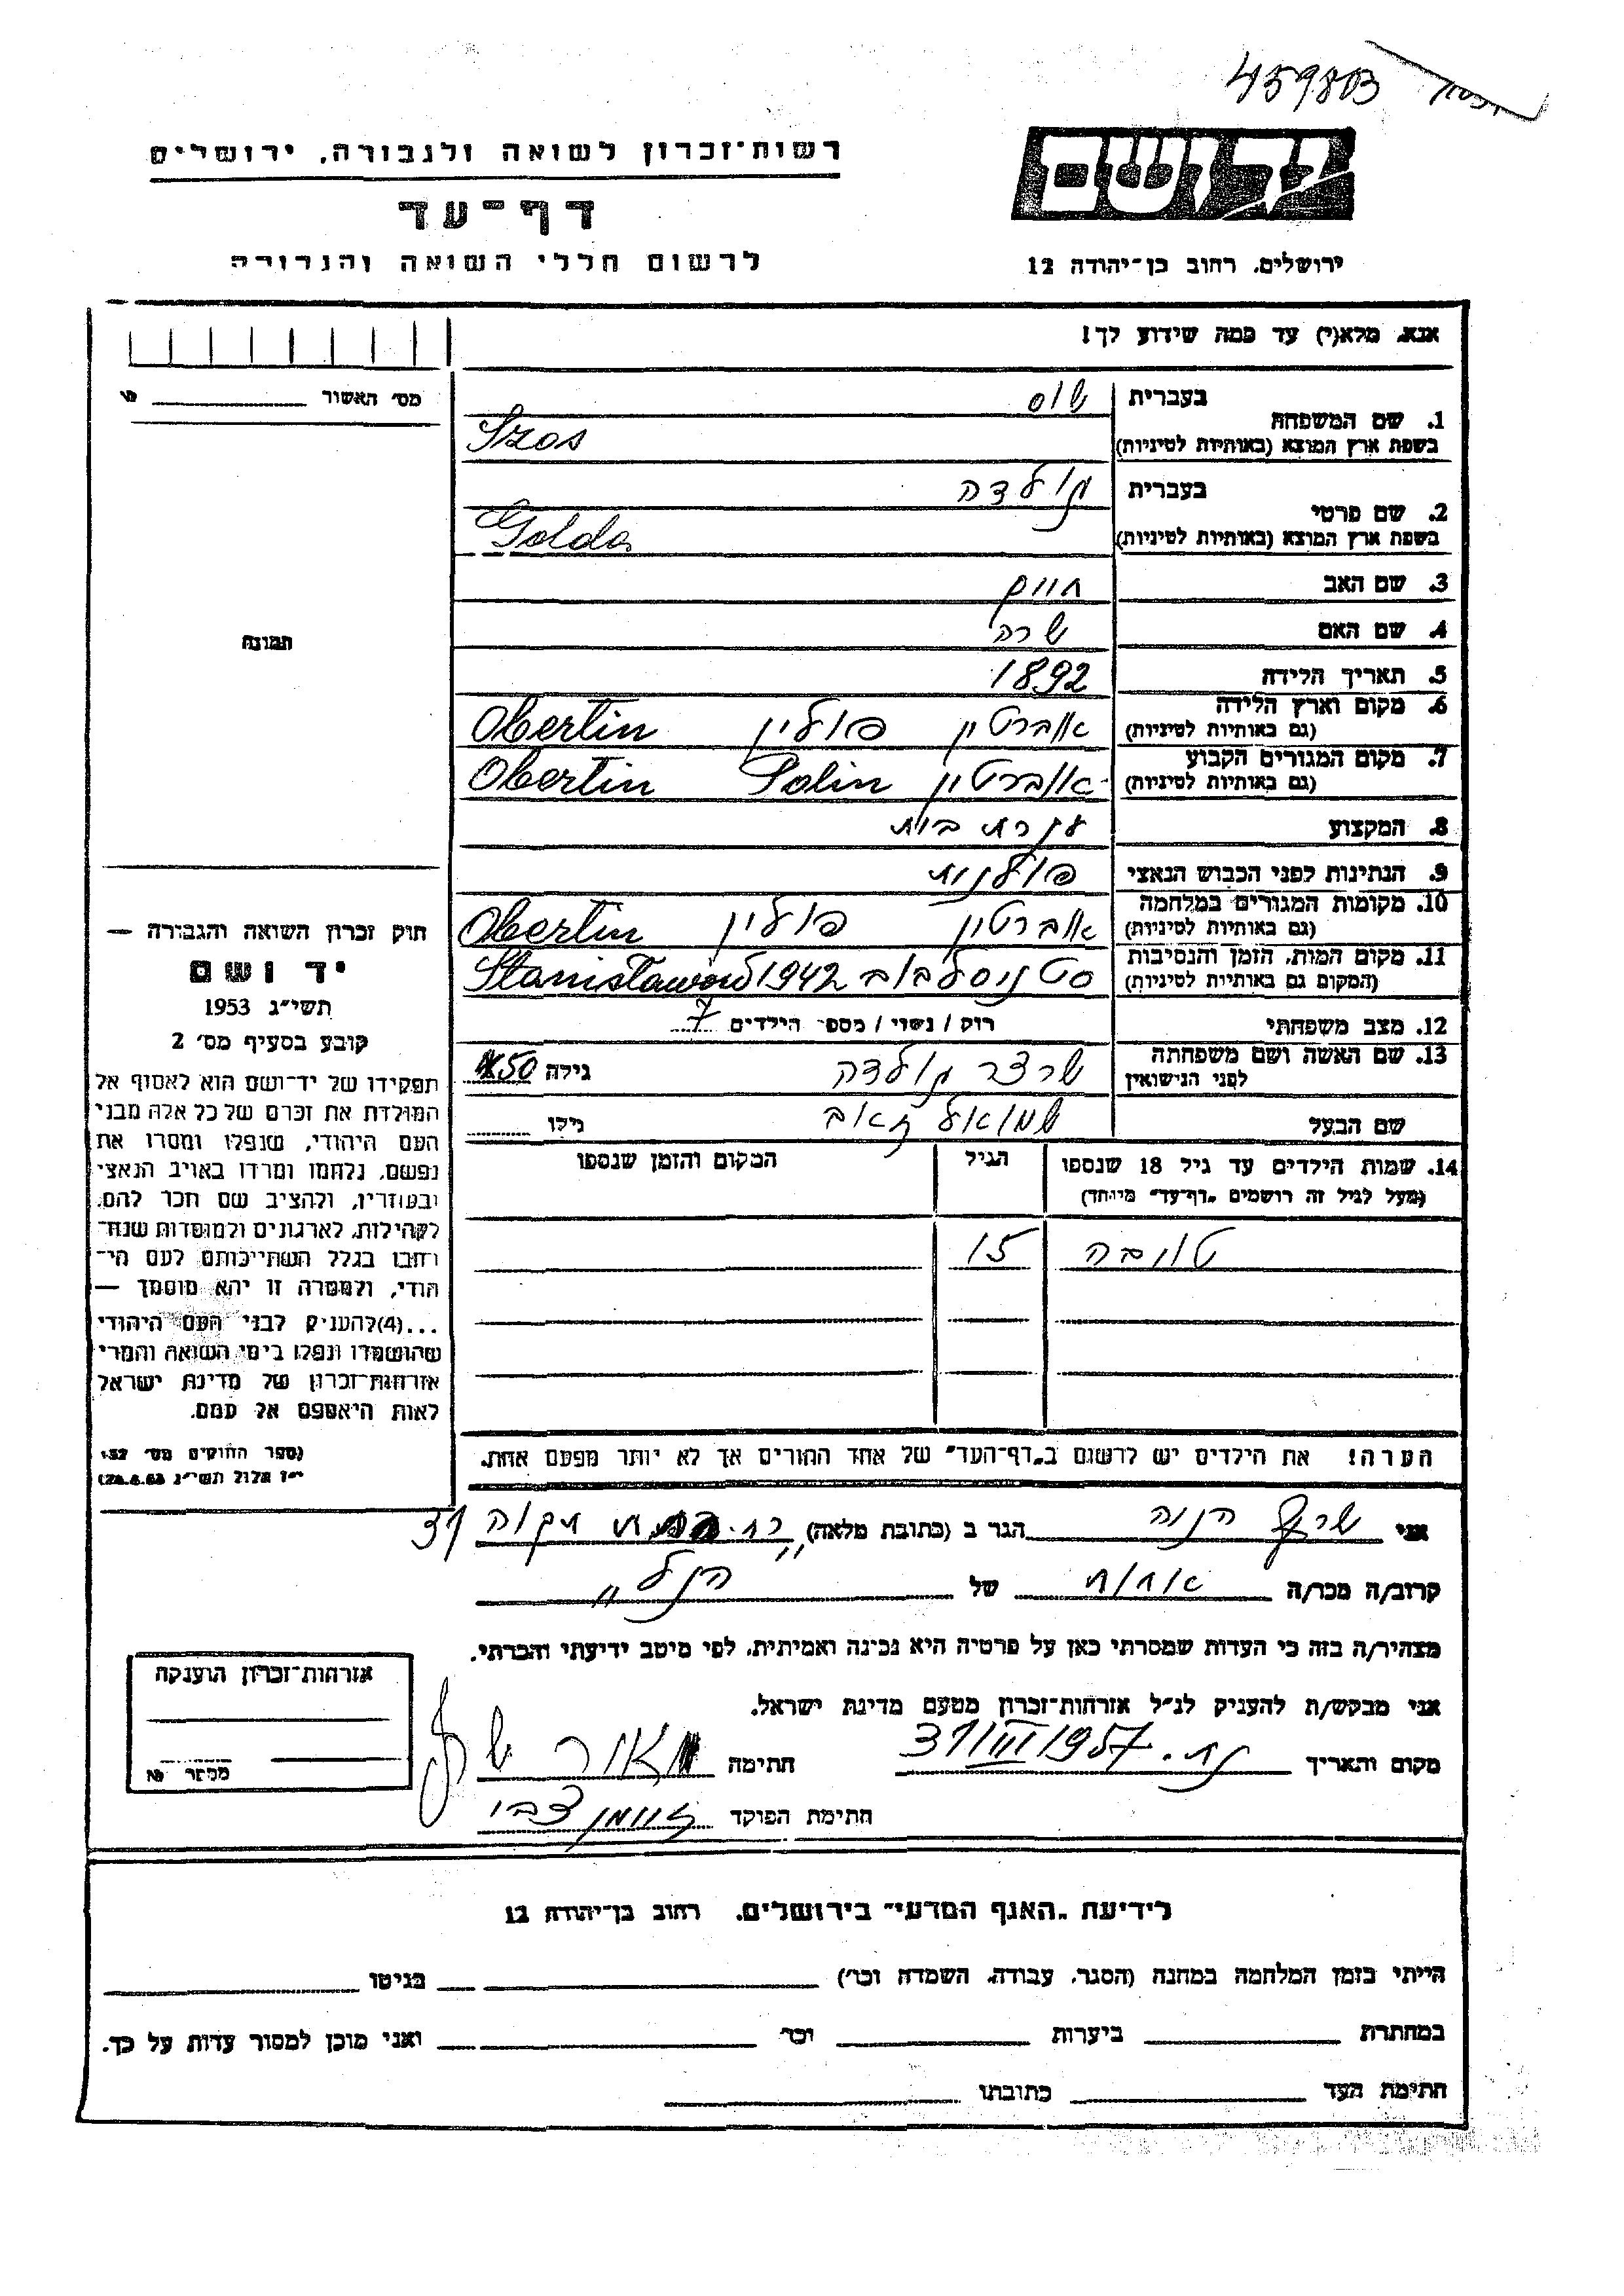 459803
רשות־זכרון לשואה ולגבורה, ירושלים
דף־עד
לרשום חללי השואה והגבורה
יד ושם
ירושלים, רחוב בן־יהודה 12
אנא, מלא(י) עד כמה שידוע לך!
מס' האשור
1. שם המשפחה
בעברית שוס
בשפת ארץ המוצא (באותיות לטיניות) Szos
2. שם פרטי
בעברית גולדה
בשפת ארץ המוצא (באותיות לטיניות) Golda
3. שם האב חיים
4. שם האם שרה
5. תאריך הלידה 1892
6. מקום וארץ הלידה (גם באותיות לטיניות) אוברטין פולין Obertin
7. מקום המגורים הקבוע (גם באותיות לטיניות) אוברטין Polin Obertin
8. המקצוע עקרת בית
9. הנתינות לפני הכבוש הנאצי פולנית
10. מקומות המגורים במלחמה (גם באותיות לטיניות) אוברטין פולין Obertin
11. מקום המות, הזמן והנסיבות (המקום גם באותיות לטיניות) סטניסלבוב 1942 Stanisławow
12. מצב משפחתי רוק / נשוי / מספר הילדים 7
13. שם האשה ושם משפחתה לפני הנישואין גולדה גילה 50
שם הבעל שמואל זאב גילו
14. שמות הילדים עד גיל 18 שנספו
(מעל לגיל זה רושמים "דף־עד" מיוחד)
הגיל
המקום והזמן שנספו
טובה 15
הערה! את הילדים יש לרשום ב"דף־העד" של אחד ההורים אך לא יותר מפעם אחת.
תמונה
חוק זכרון השואה והגבורה —
יד ושם
תשי"ג 1953
קובע בסעיף מס' 2
תפקידו של יד־ושם הוא לאסוף אל
המולדת את זכרם של כל אלה מבני
העם היהודי, שנפלו ומסרו את
נפשם, נלחמו ומרדו באויב הנאצי
ובעוזריו, ולהציב שם וזכר להם,
לקהילות, לארגונים ולמוסדות שנח־
רבו בגלל השתייכותם לעם הי־
הודי, ולמטרה זו יהא מוסמך —
...(4)להעניק לבני העם היהודי
שהושמדו ונפלו בימי השואה והמרי
אזרחות־זכרון של מדינת ישראל
לאות היאספם אל עמם.
(ספר החוקים מס' 132
י"ז אלול תשי"ג 28.8.53)
אני חנה הגר ב (כתובת מלאה) תקוה 31
קרוב/ה מכר/ה אחות של "הנ"ל"
מצהיר/ה בזה כי העדות שמסרתי כאן על פרטיה היא נכונה ואמיתית, לפי מיטב ידיעתי והכרתי.
אני מבקש/ת להעניק לנ"ל אזרחות־זכרון מטעם מדינת ישראל.
מקום ותאריך 31/III 1957 חתימה
חתימת הפוקד צבי
אזרחות־זכרון הוענקה
מספר
לידיעת "האגף המדעי" בירושלים, רחוב בן־יהודה 12
הייתי בזמן המלחמה במחנה (הסגר, עבודה, השמדה וכו') בגיטו
במחתרת ביערות וכו' ואני מוכן למסור עדות על כך.
חתימת העד כתובתו